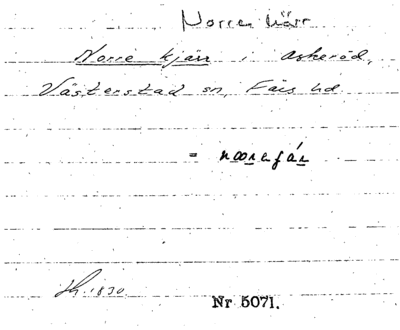 Norre kärr
Norre kjärr i Askeröd,
Västerstad sn, Färs hd.
= nørefár
Sk. 1830
Nr 5071.